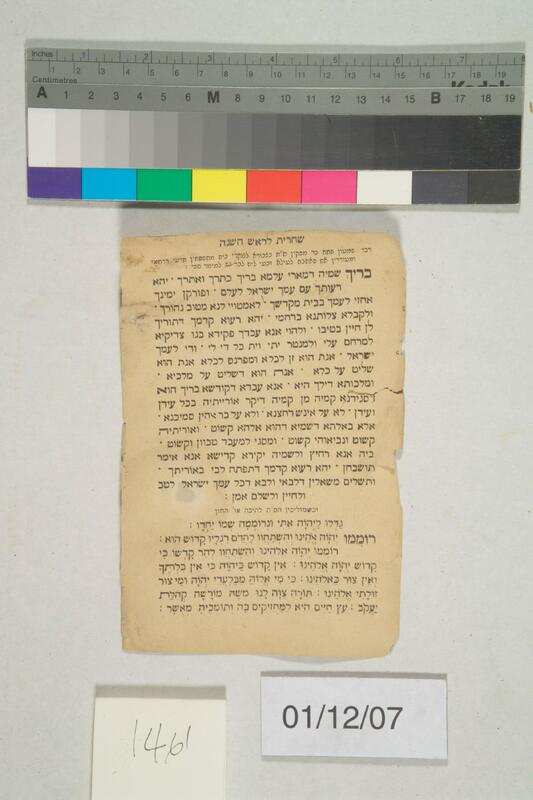 Inches 1 2 3 4 5 6 7 8
Centimetres 1 2 3 4 5 6 7 8 9 10 11 12 13 14 15 16 17 18 19
Kodak
A 1 2 3 4 5 6 M 8 9 10 11 12 13 14 15 B 17 18 19
שחרית לראש השנה
רבי שמעון פתח כד מפקין ס"ת
בריך שמיה דמארי עלמא בריך כתרך ואתרך · יהא
רעותך עם עמך ישראל לעלם · ופורקן ימינך
אחזי לעמך בבית מקדשך · לאמטויי לנא מטוב נהורך ·
ולקבלא צלותנא ברחמי · יהא רעוא קדמך דתוריך
לן חיין בטיבו · ולהוי אנא עבדך פקידא בגו צדיקיא
למרחם עלי ולמנטר יתי וית כל די לי · ודי לעמך
ישראל · אנת הוא זן לכלא ומפרנס לכלא אנת הוא
שליט על כלא · אנת הוא דשליט על מלכיא ·
ומלכותא דילך היא · אנא עבדא דקודשא בריך הוא
דסגידנא קמיה מן קמיה דיקר אורייתיה בכל עידן
ועידן · לא על אינש רחצנא · ולא על בר אהין סמיכנא ·
אלא באלהא דשמיא דהוא אלהא קשוט · ואורייתיה
קשוט ונביאוהי קשוט · ומסגי למעבד טבוון וקשוט ·
ביה אנא רחיץ ולשמיה יקירא קדישא אנא אימר
תושבחן · יהא רעוא קדמך דתפתח לבי באוריתך ·
ותשלים משאלין דלבאי ולבא דכל עמך ישראל לטב
ולחיין ולשלם אמן :
וכשמוליכין הס"ת לתיבה או' החזן
גַּדְּלוּ לַיְהוָה אִתִּי וּנְרוֹמְמָה שְׁמוֹ יַחְדָּו :
רוֹמְמוּ יְהוָה אֱלֹהֵינוּ וְהִשְׁתַּחֲווּ לַהֲדֹם רַגְלָיו קָדוֹשׁ הוּא :
רוֹמְמוּ יְהוָה אֱלֹהֵינוּ וְהִשְׁתַּחֲווּ לְהַר קָדְשׁוֹ כִּי
קָדוֹשׁ יְהוָה אֱלֹהֵינוּ : אֵין קָדוֹשׁ כַּיהוָה כִּי אֵין בִּלְתֶּךָ
וְאֵין צוּר כֵּאלֹהֵינוּ : כִּי מִי אֱלוֹהַּ מִבַּלְעֲדֵי יְהוָה וּמִי צוּר
זוּלָתִי אֱלֹהֵינוּ : תּוֹרָה צִוָּה לָנוּ מֹשֶׁה מוֹרָשָׁה קְהִלַּת
יַעֲקֹב : עֵץ חַיִּים הִיא לַמַּחֲזִיקִים בָּהּ וְתוֹמְכֶיהָ מְאֻשָּׁר :
01/12/07
1461